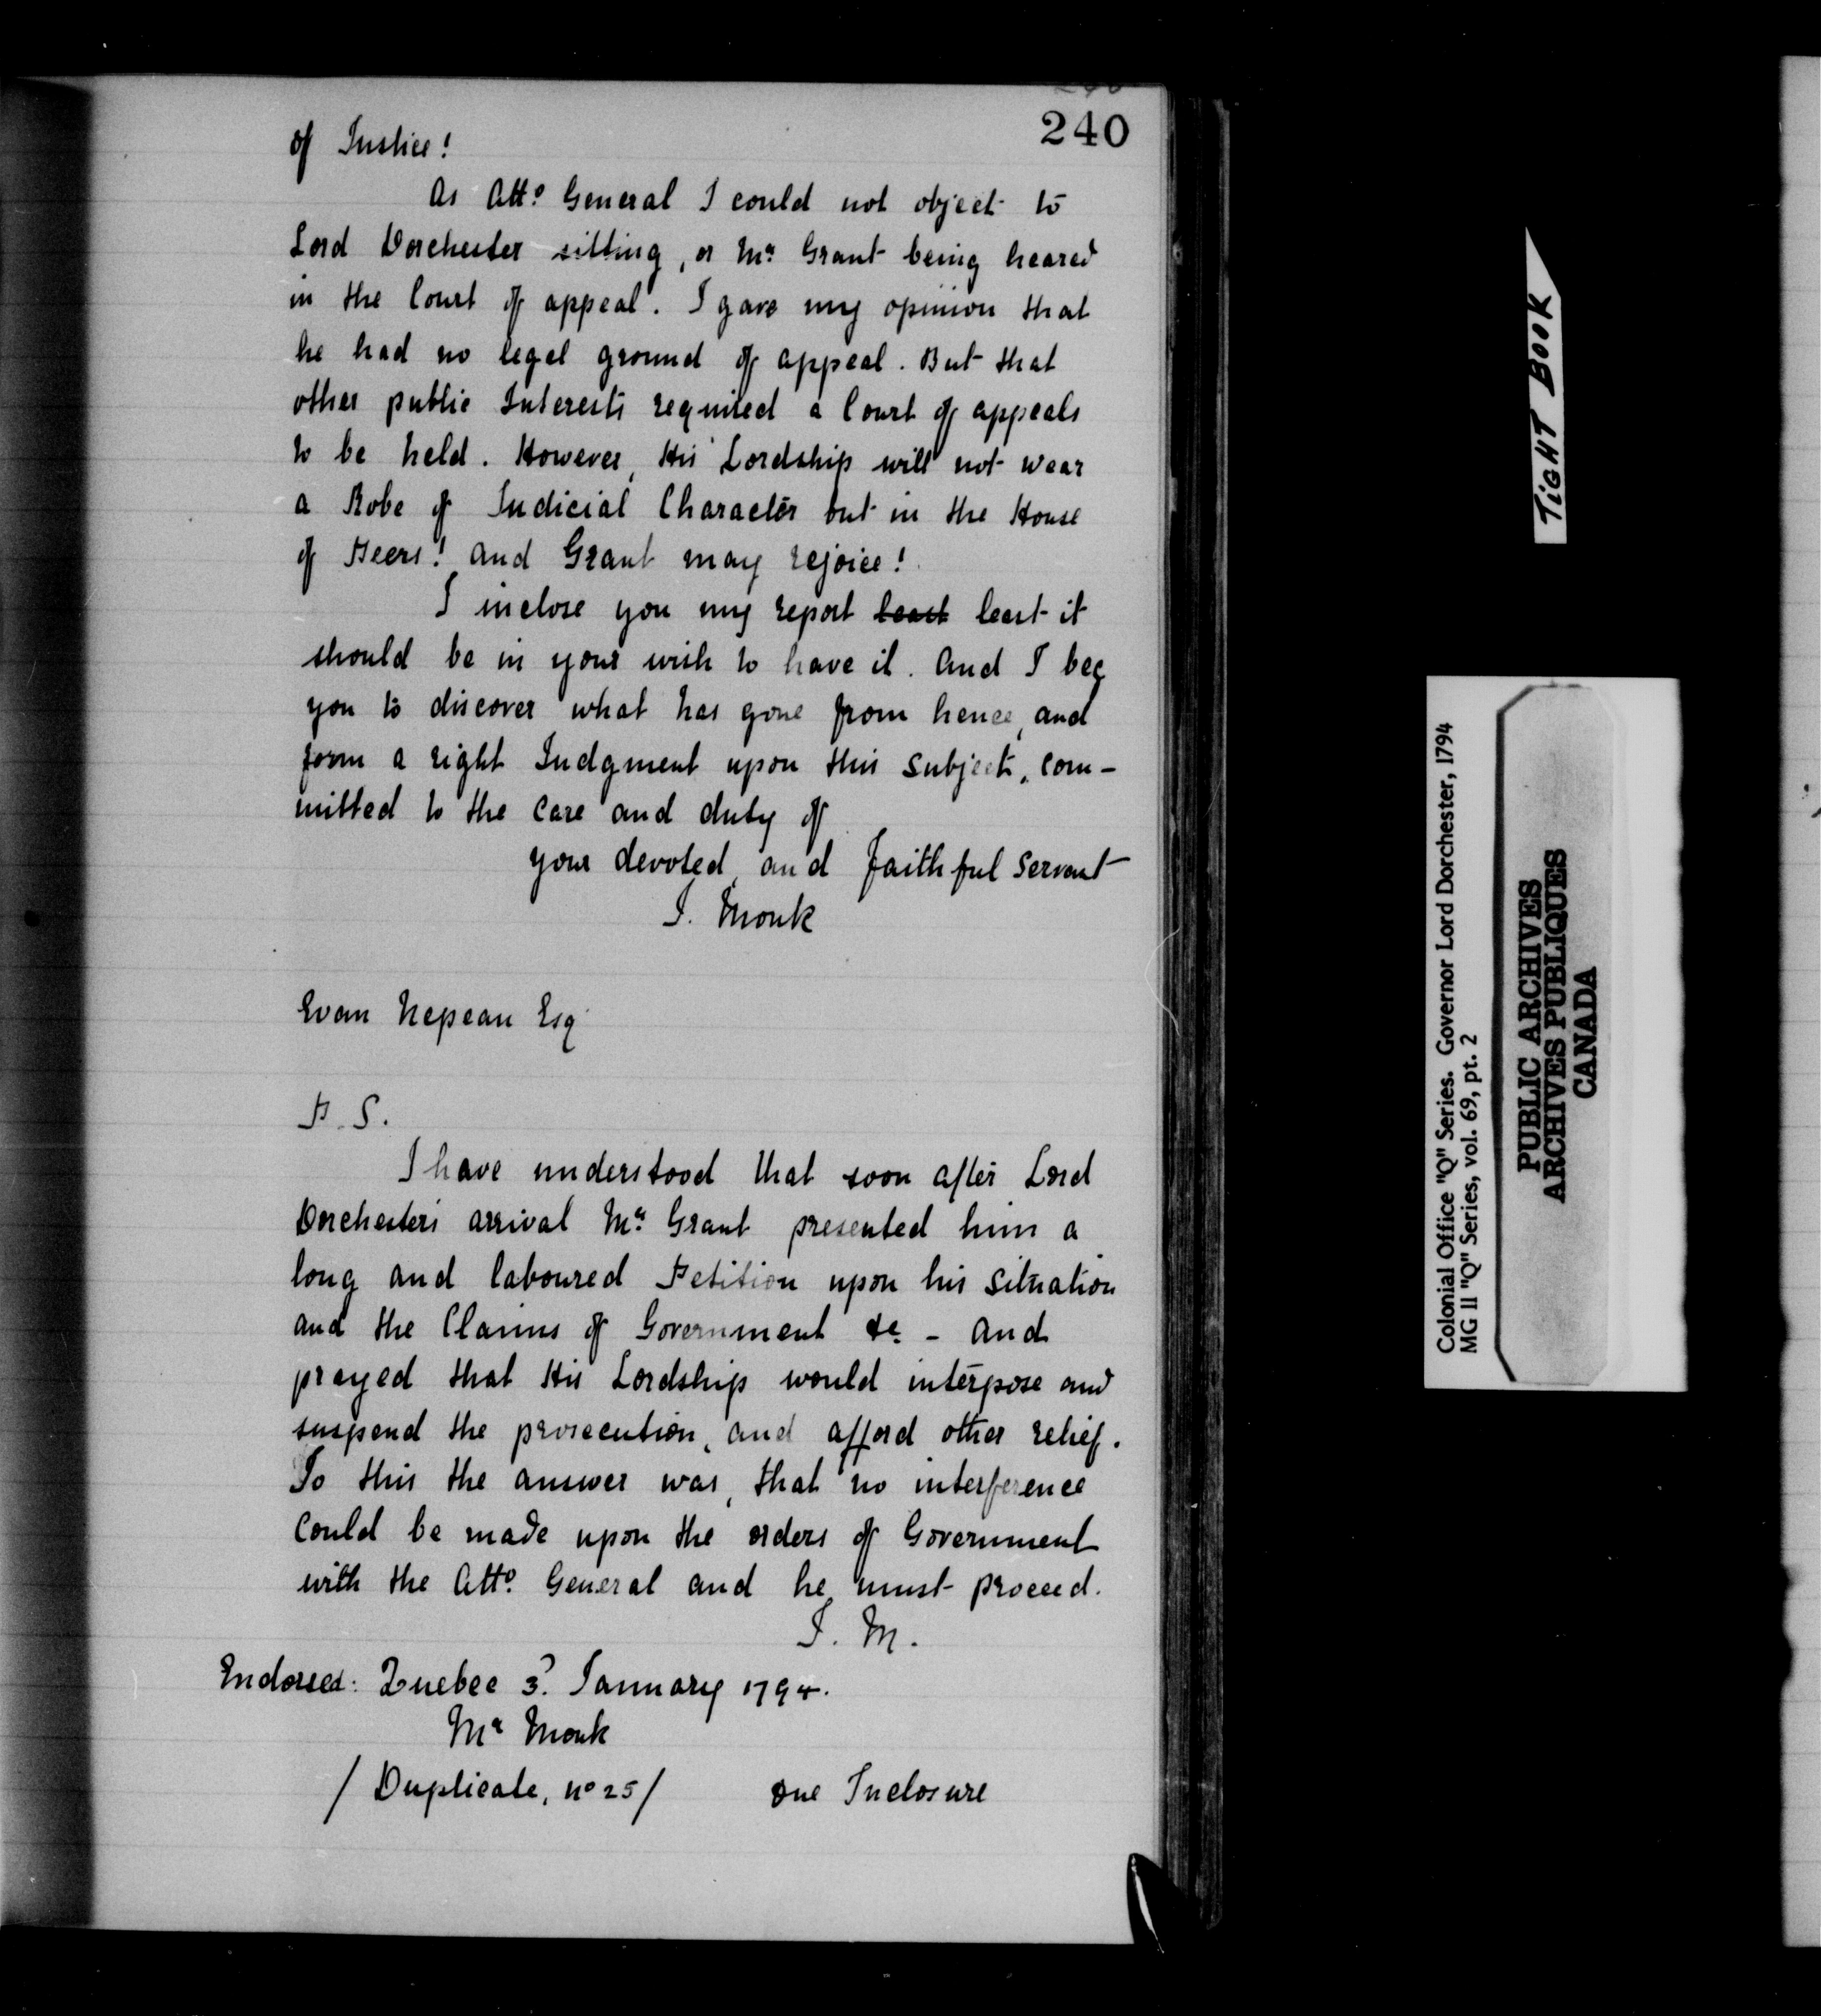 240
of Justice!
As Atto. General I could not object to
Lord Dorchester sitting, or Mr. Grant being heared
in the Court of appeal. I gave my opinion that
he had no legal ground of appeal. But that
other public Interests required a Court of appeals
to be held. However, His Lordship will not wear
a Robe of Judicial Character but in the House
of Peers! and Grant may rejoice!
I inclose you my report least least it
should be in your wish to have it. And I beg
you to discover what has gone from hence, and
form a right Judgment upon this subject, com-
mitted to the care and duty of
your devoted and faithful servant
J. Monk
Evan Nepean Esq
P.S.
I have understood that soon after Lord
Dorchesters arrival Mr. Grant presented him a
long and laboured Petition upon his situation
and the Claims of Government &c. - and
prayed that His Lordship would interpose and
suspend the prosecution, and afford other relief.
To this the answer was, that no interference
could be made upon the orders of Government
with the Atto. General and he must proceed.
J. M.
Endorsed: Quebec 3d. January 1794.
Mr Monk
/ Duplicate, no 25 / one Inclosure
TIGHT BOOK
Colonial Office "Q" Series. Governor Lord Dorchester, 1794
MG II "Q" Series, vol. 69, pt. 2
PUBLIC ARCHIVES
ARCHIVES PUBLIQUES
CANADA